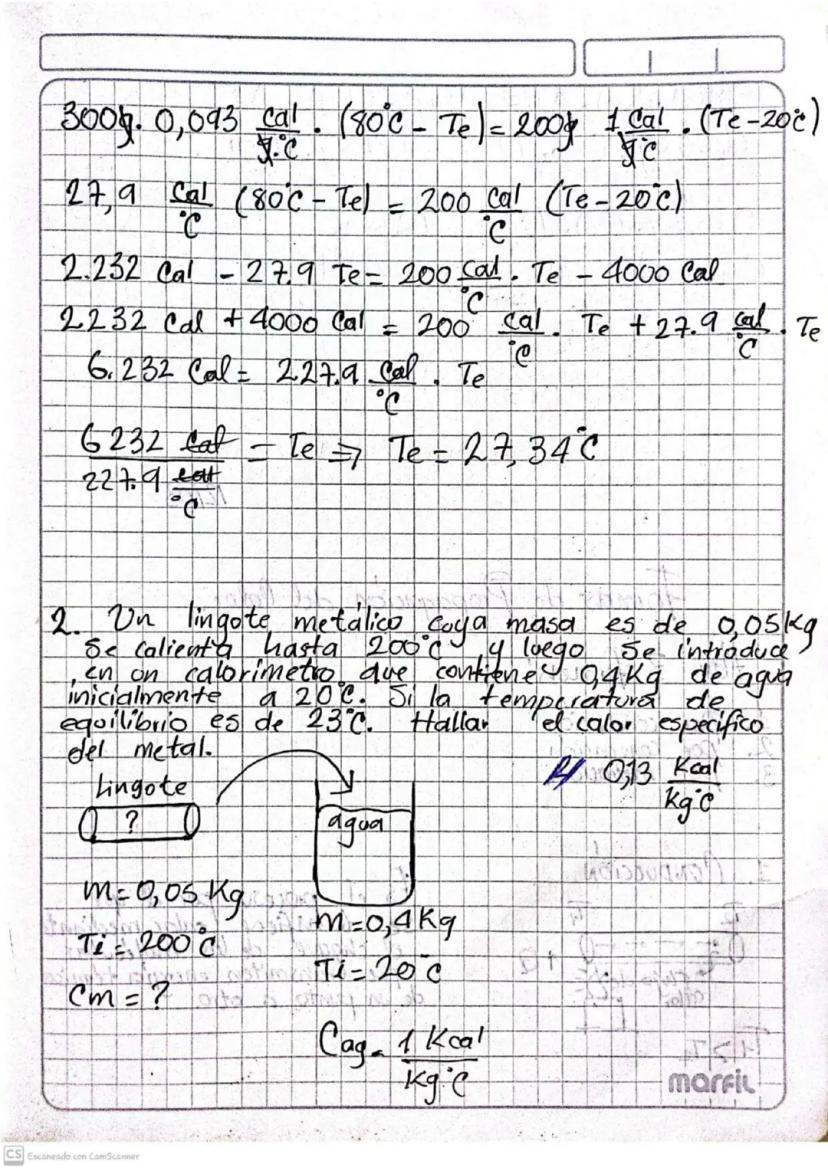 300g. 0,093 cal/g.°C . (80°C - Te) = 200g 1 Cal/g°C . (Te-20°c)
27,9 Cal/°C (80°C - Te) = 200 cal/°C (Te-20°C)
2.232 Cal - 27.9 Te = 200 cal/°C . Te - 4000 Cal
2232 Cal + 4000 Cal = 200 cal/°C . Te + 27.9 cal/°C . Te
6.232 Cal = 227.9 Cal/°C . Te
6232 cal/227.9 cal/°C = Te ⇒ Te = 27,34°C
2. Un lingote metálico coya masa es de 0,05Kg
Se calienta hasta 200°C y luego Se introduce
en on calorimetro que contiene 0,4Kg de agua
inicialmente a 20°C. Si la temperatura de
equilibrio es de 23°C. Hallar el calor especifico
del metal.
R/ 0,13 Kcal/Kg°C
Lingote
?
agua
m=0,05 Kg
m=0,4Kg
Ti=200°C
Ti=20°C
Cm=?
Cag= 1 Kcal/Kg°C
marfil
CS Escaneado con CamScanner